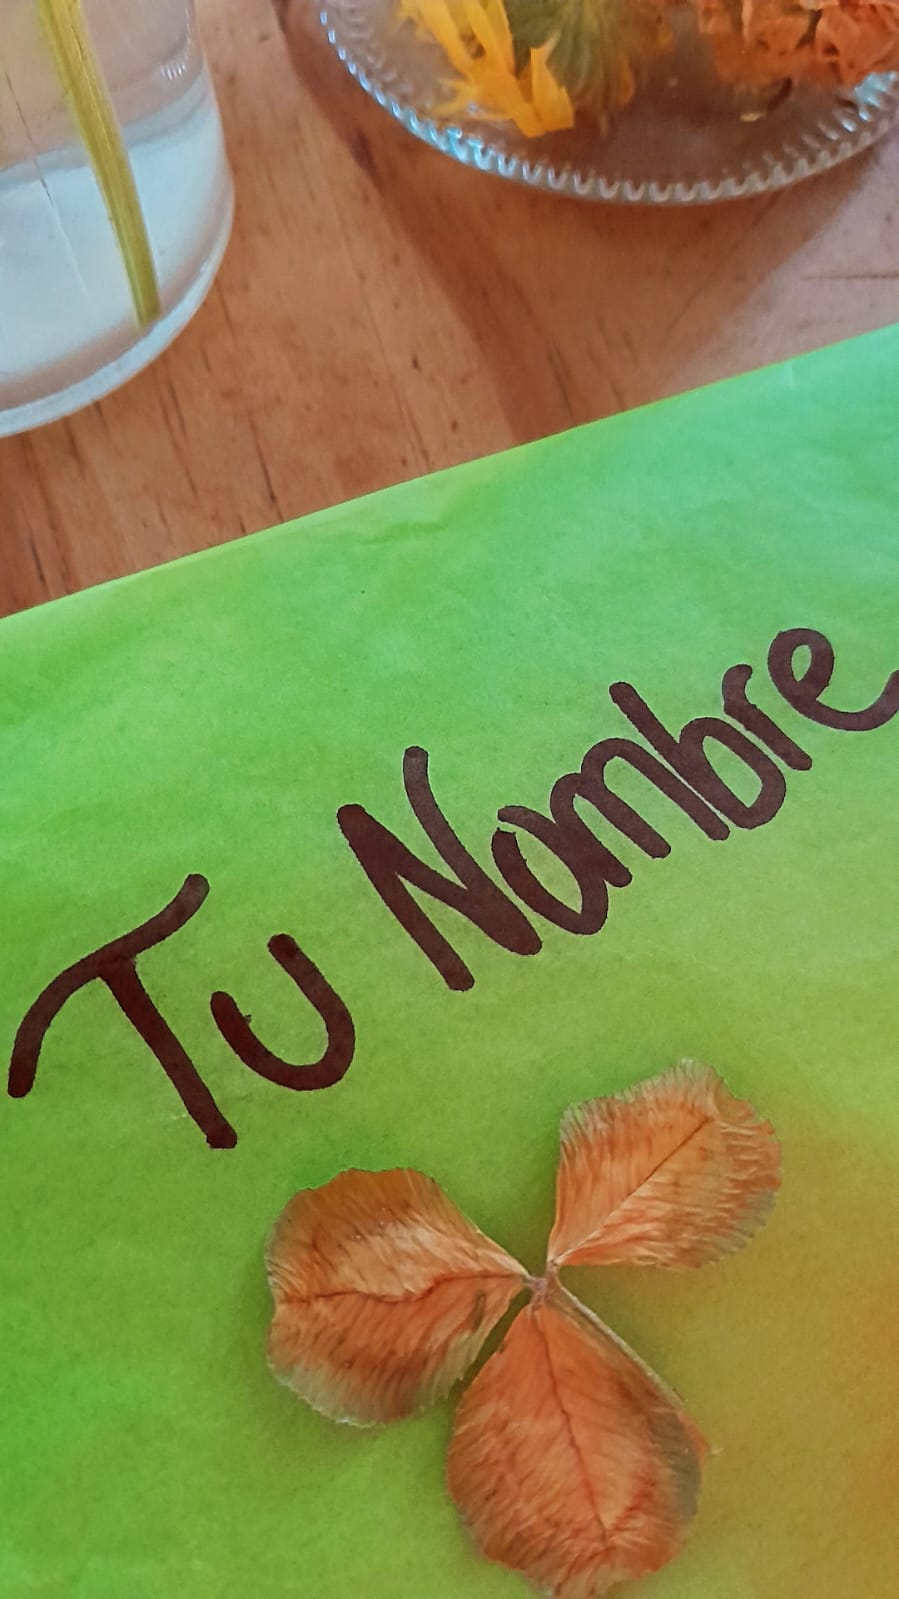 Tu Nombre